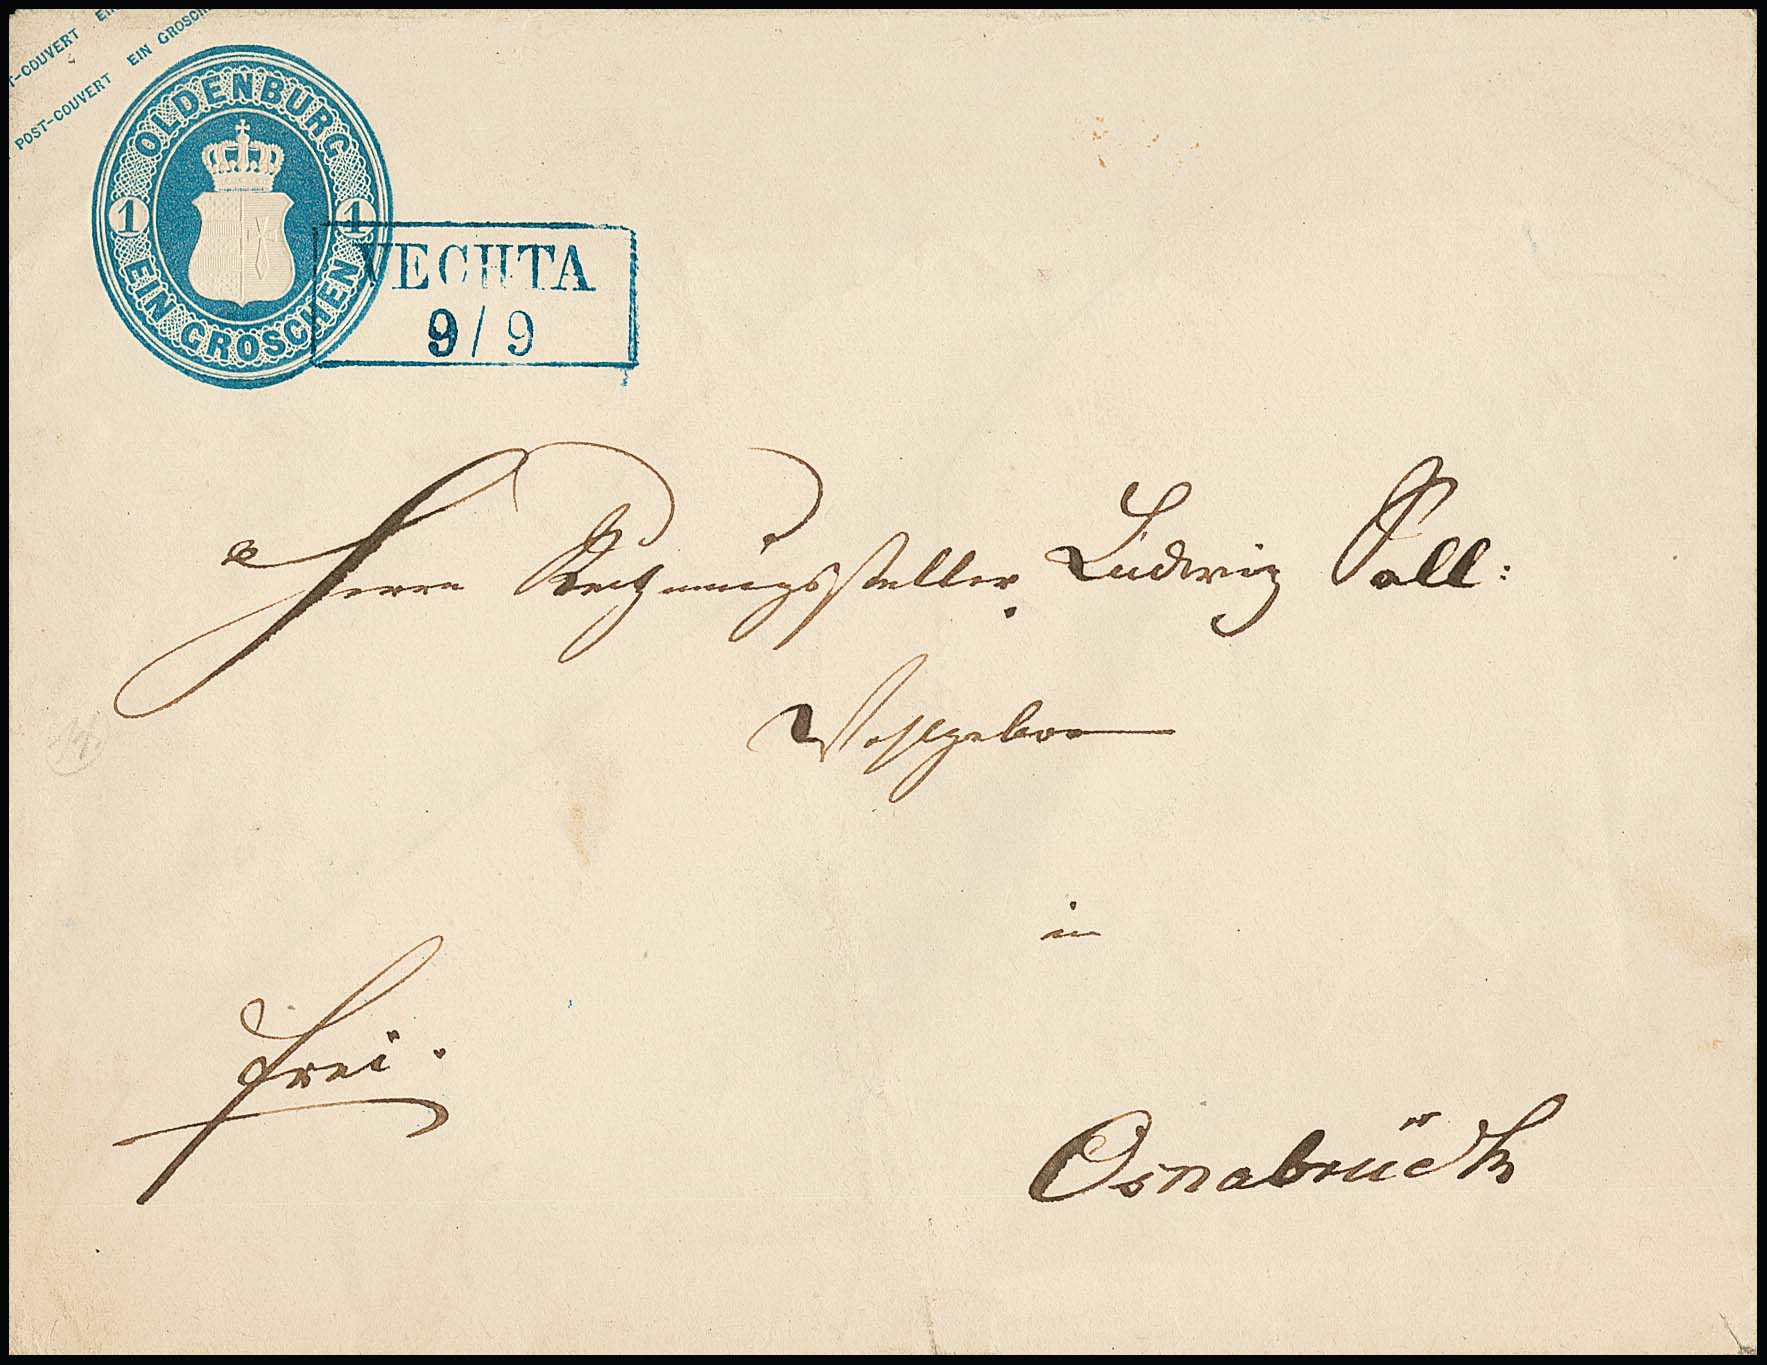 T-COUVERT EIN
POST-COUVERT EIN GROSCHE
OLDENBURG
1 1
EIN GROSCHEN
VECHTA
9/9
Herrn Rechnungssteller Ludwig
Wohlgeborn
in
frei.
Osnabrück